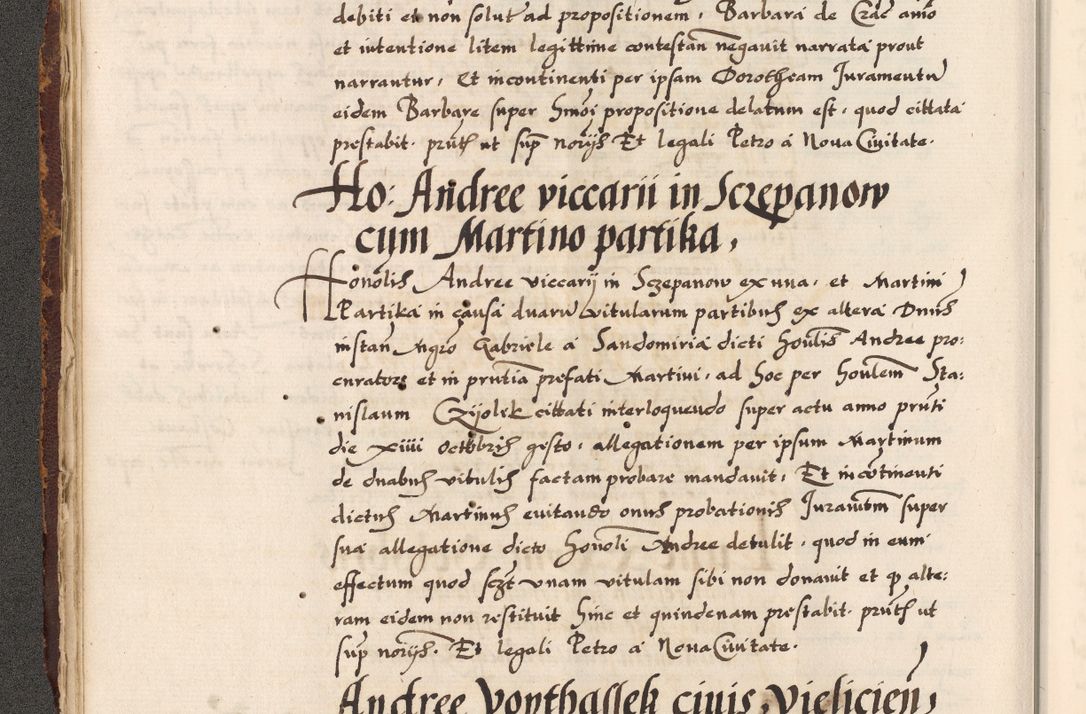 debiti et non solut ad propositionem, Barbara de Crac anno
et intentione litem legittime contestan negavit narrata prout
narrantur, Et incontinenti per ipsam Dorotheam Juramentu
eidem Barbare super hmoi propositione delatum est, quod cittata
prestabit. prntib ut sup norijs Et legali Petro a Nova Civitate.
Ho: Andree viccarii in Sczepanow
cum Martino partika,
Honolis Andree viccarij in Sczepanow ex una, et Martini
Partika in causa duaru vitularum partibus ex altera Dnus
instan Mgro Gabriele a Sandomiria dicti honolis Andree pro:
curatore et in prntia prefati Martini, ad hoc per honolem Sta:
nislaum Czijolek cittati interloquendo super actu anno prnti
die xiiii octobris gesto, allegationem per ipsum Martinum
de duabus vitulis factam probare mandavit, Et incotinenti
dictus Martinus evitando onus probationis Juramtm super
sua allegatione dicto honoli Andree detulit, quod in eum
effectum quod sczt unam vitulam sibi non donavit et q alte:
ram eidem non restituit hinc et quindenam prestabit. prntib ut
sup norijs. Et legali Petro a Nova Civitate.
Andree Voythassek civis, Vielicien,